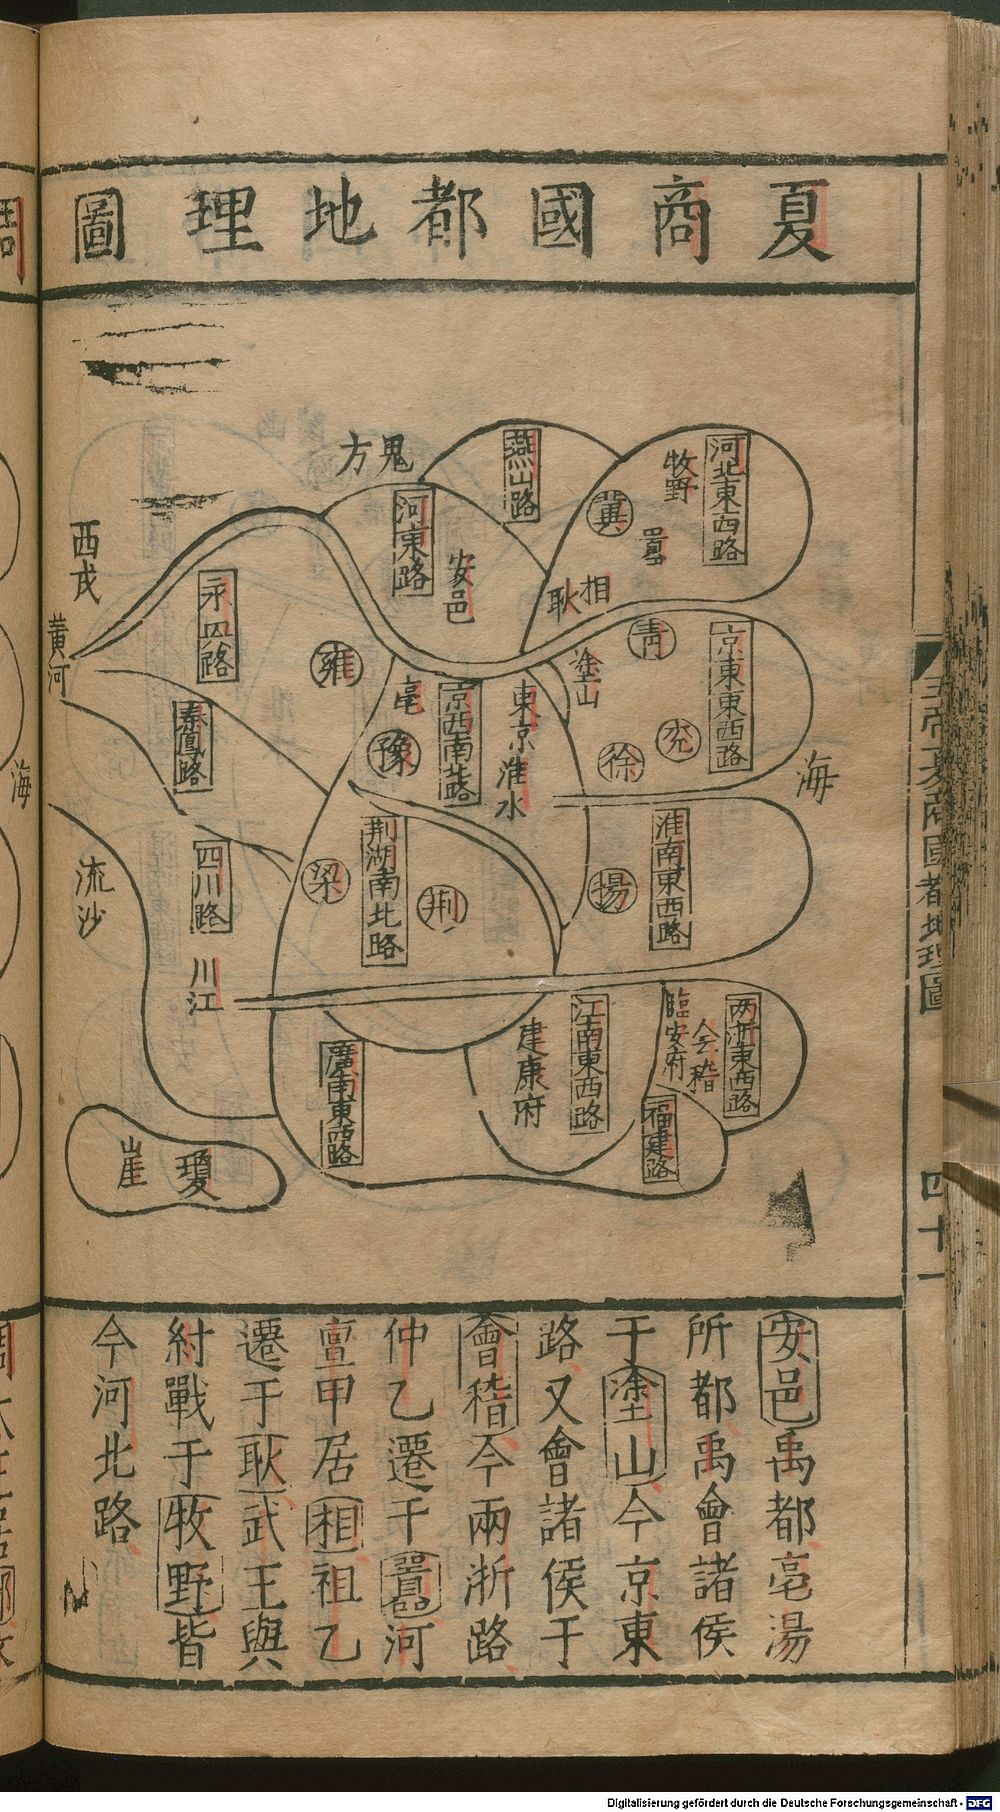 夏商國都地理圖
鬼方
燕山路
河北東西路
牧野
冀
囂
相
耿
河東路
安邑
西戎
黃河
永興路
雍
秦鳳路
亳
豫
京西南北路
東京淮水
塗山
青
兗
徐
京東東西路
海
海
流沙
四川路
川江
梁
荆湖南北路
荆
揚
淮南東西路
廣南東西路
建康府
江南東西路
臨安府
会稽
两浙東西路
福建路
瓊
崖
安邑禹都亳湯
所都禹會諸侯
于塗山今京東
路又會諸侯于
會稽今兩浙路
仲乙遷于囂河
亶甲居相祖乙
遷于耿武王與
紂戰于牧野皆
今河北路
夏商國都地理圖
四十一
Digitalisierung gefördert durch die Deutsche Forschungsgemeinschaft - DFG